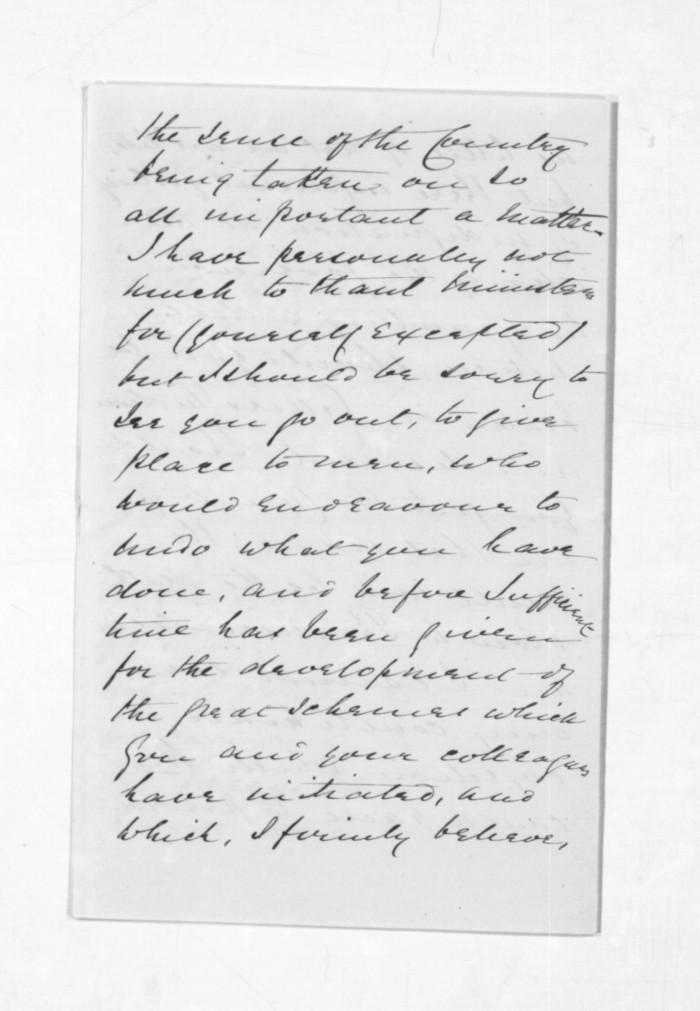 the sense of the Country
being taken on so
all important a matter.
I have personally not
much to thank Ministers
for (yourself excepted)
but I should be sorry to
see you go out, to give
place to men, who
would endeavour to
undo what you have
done, and before sufficient
time has been given
for the development of
the great schemes which
you and your colleagues
have initiated, and
which, I firmly believe,